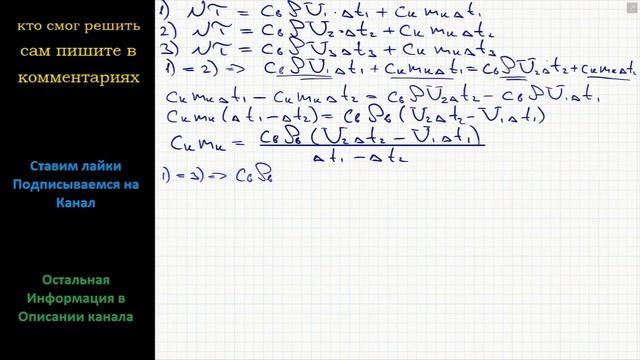 кто смог решить
сам пишите в
комментариях
Ставим лайки
Подписываемся на
Канал
Остальная
Информация в
Описании канала
1) Nτ = CвρU₁·Δt₁ + CкmкΔt₁
2) Nτ = CвρU₂·Δt₂ + CкmкΔt₂
3) Nτ = CвρU₃Δt₃ + CкmкΔt₃
1) = 2) => CвρU₁Δt₁ + CкmкΔt₁ = CвρU₂Δt₂ + CкmкΔt₂
CкmкΔt₁ − CкmкΔt₂ = CвρU₂Δt₂ − CвρU₁Δt₁
Cкmк(Δt₁ − Δt₂) = Cвρв(U₂Δt₂ − U₁Δt₁)
Cкmк = Cвρв(U₂Δt₂ − U₁Δt₁)
Δt₁ − Δt₂
1) = 3) => Cвρв